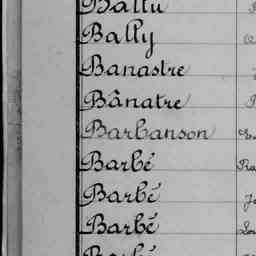 Ballu
Bally
Banastre
Bânatre
Barbanson
Barbé
Barbé
Barbé
Barbé